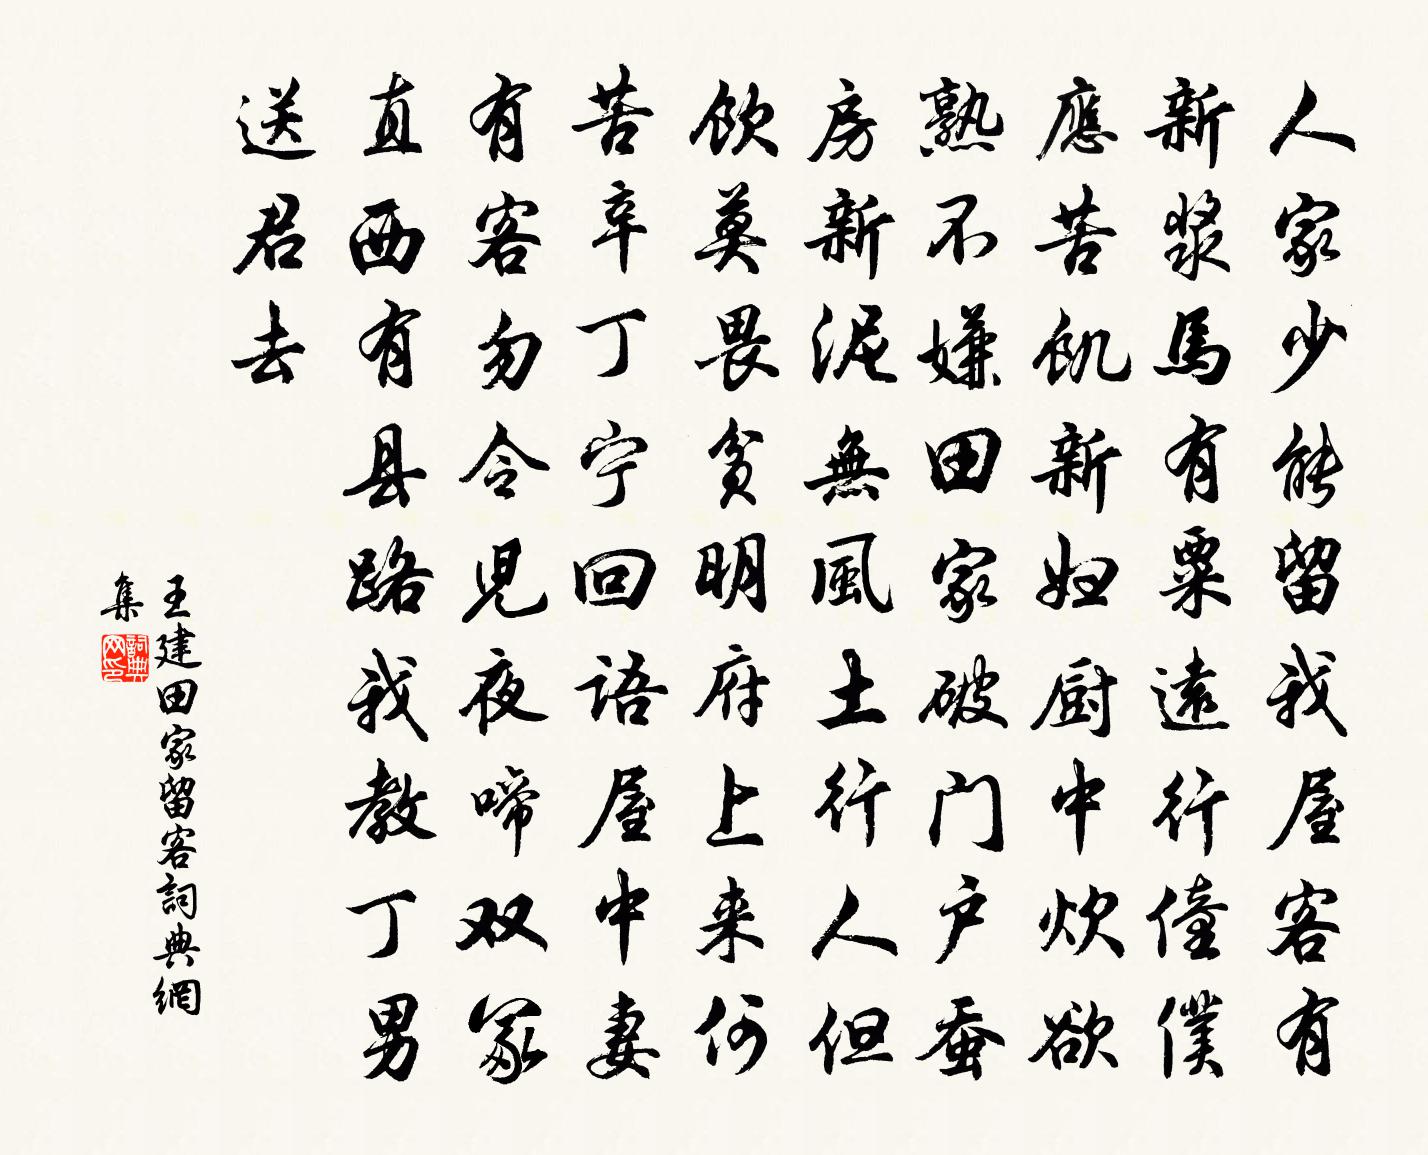 人家少能留我屋客有
新漿馬有粟遠行僮僕
應苦飢新妇厨中炊欲
熟不嫌田家破门户蚕
房新泥無風土行人但
飲莫畏貧明府上来何
苦辛丁宁回语屋中妻
有客勿令兒夜啼双冢
直西有县路我教丁男
送君去
王建田家留客詞典網
集
詞典
网印